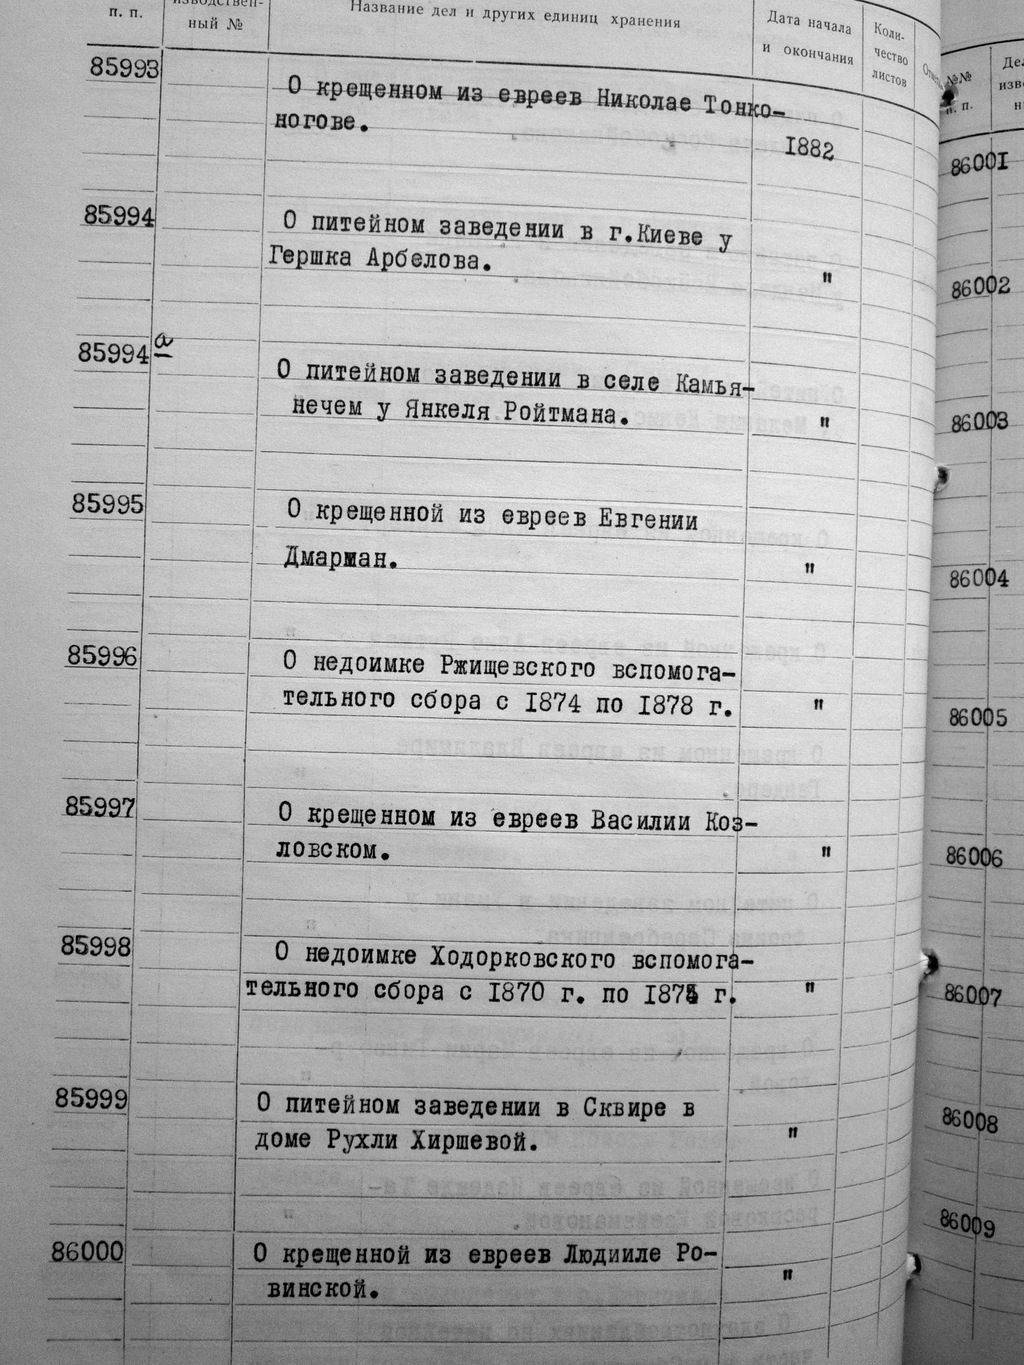 п. п.
ный №
Название дел и других единиц хранения
Дата начала
и окончания
Коли-
чество
листов
85993
О крещенном из евреев Николае Тонко-
ногове.
1882
85994
О питейном заведении в г.Киеве у
Гершка Арбелова.
"
85994 а
О питейном заведении в селе Камья-
нечем у Янкеля Ройтмана.
"
85995
О крещенной из евреев Евгении
Дмарман.
"
85996
О недоимке Ржищевского вспомога-
тельного сбора с 1874 по 1878 г.
"
85997
О крещенном из евреев Василии Коз-
ловском.
"
85998
О недоимке Ходорковского вспомога-
тельного сбора с 1870 г. по 187 г.
"
85999
О питейном заведении в Сквире в
доме Рухли Хиршевой.
"
86000
О крещенной из евреев Людииле Ро-
винской.
"
№№
п. п.
86001
86002
86003
86004
86005
86006
86007
86008
86009